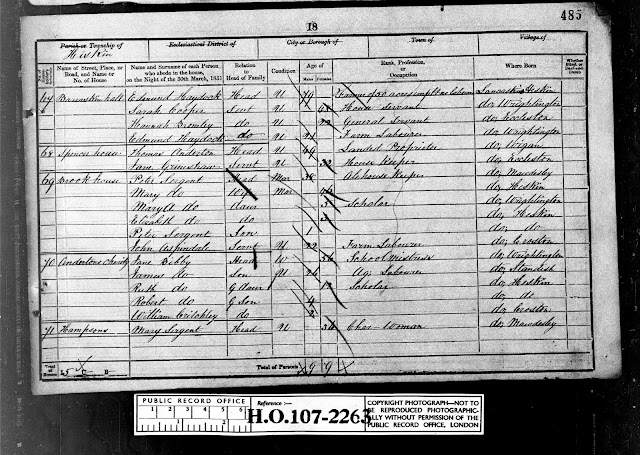 18
485
Parish or Township of
Ecclesiastical District of
City or Borough of
Town of
Village of
Heskin
Name of Street, Place, or Road, and Name or No. of House
Name and Surname of each Person, who abode in the house, on the Night of the 30th March, 1851
Relation to Head of Family
Condition
Age of
Males
Females
Rank, Profession, or Occupation
Where Born
Whether Blind, or Deaf-and-Dumb
67 Barmskin hall Edmund Haydock Head U 79 Lancashire Heskin
Sarah Cooper Servt U House Servant do, Wrightington
Hannah Bromley do U 22 General Servant do, Eccleston
Edmund Haydock do U 21 Farm Labourer do, Wrightington
68 Spencer house Thomas Anderton Head U 69 Landed Proprietor do, Wigan
Jane Grimshaw Servt U 32 House Keeper do, Eccleston
69 Brook house Peter Sargent Head Mar 38 Alehouse Keeper do, Mawdesley
Mary do Wife Mar do, Heskin
Mary A do Daur Scholar do, Wrightington
Elizabeth do do do, Heskin
Peter Sargent Son 1 do, do
John Aspindale Servt U 22 Farm Labourer do, Croston
70 Andertons Charity Jane Bibby Head W School Mistress do, Wrightington
James do Son U 26 Ag. Labourer do, Standish
Ruth do G Daur Scholar do, Heskin
Robert do G Son 4 do, do
William Critchley do 2 do, Croston
71 Hampsons Mary Sargent Head U 34 Char-Woman do, Mawdesley
Total of Houses
Total of Persons
9 9
PUBLIC RECORD OFFICE
1 2 3 4 5 6
Reference :-
H.O.107-2263
COPYRIGHT PHOTOGRAPH—NOT TO
BE REPRODUCED PHOTOGRAPHIC-
ALLY WITHOUT PERMISSION OF THE
PUBLIC RECORD OFFICE, LONDON